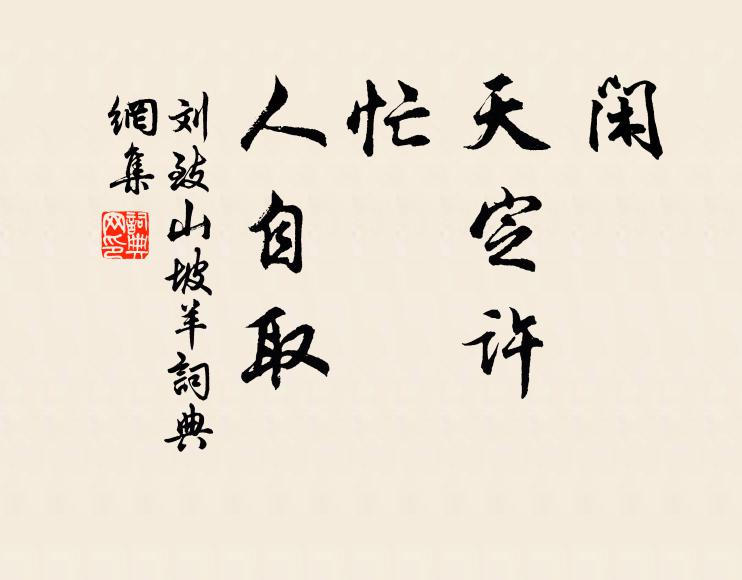 闲
天定许
忙
人自取
刘致山坡羊詞典
網集
詞典网印